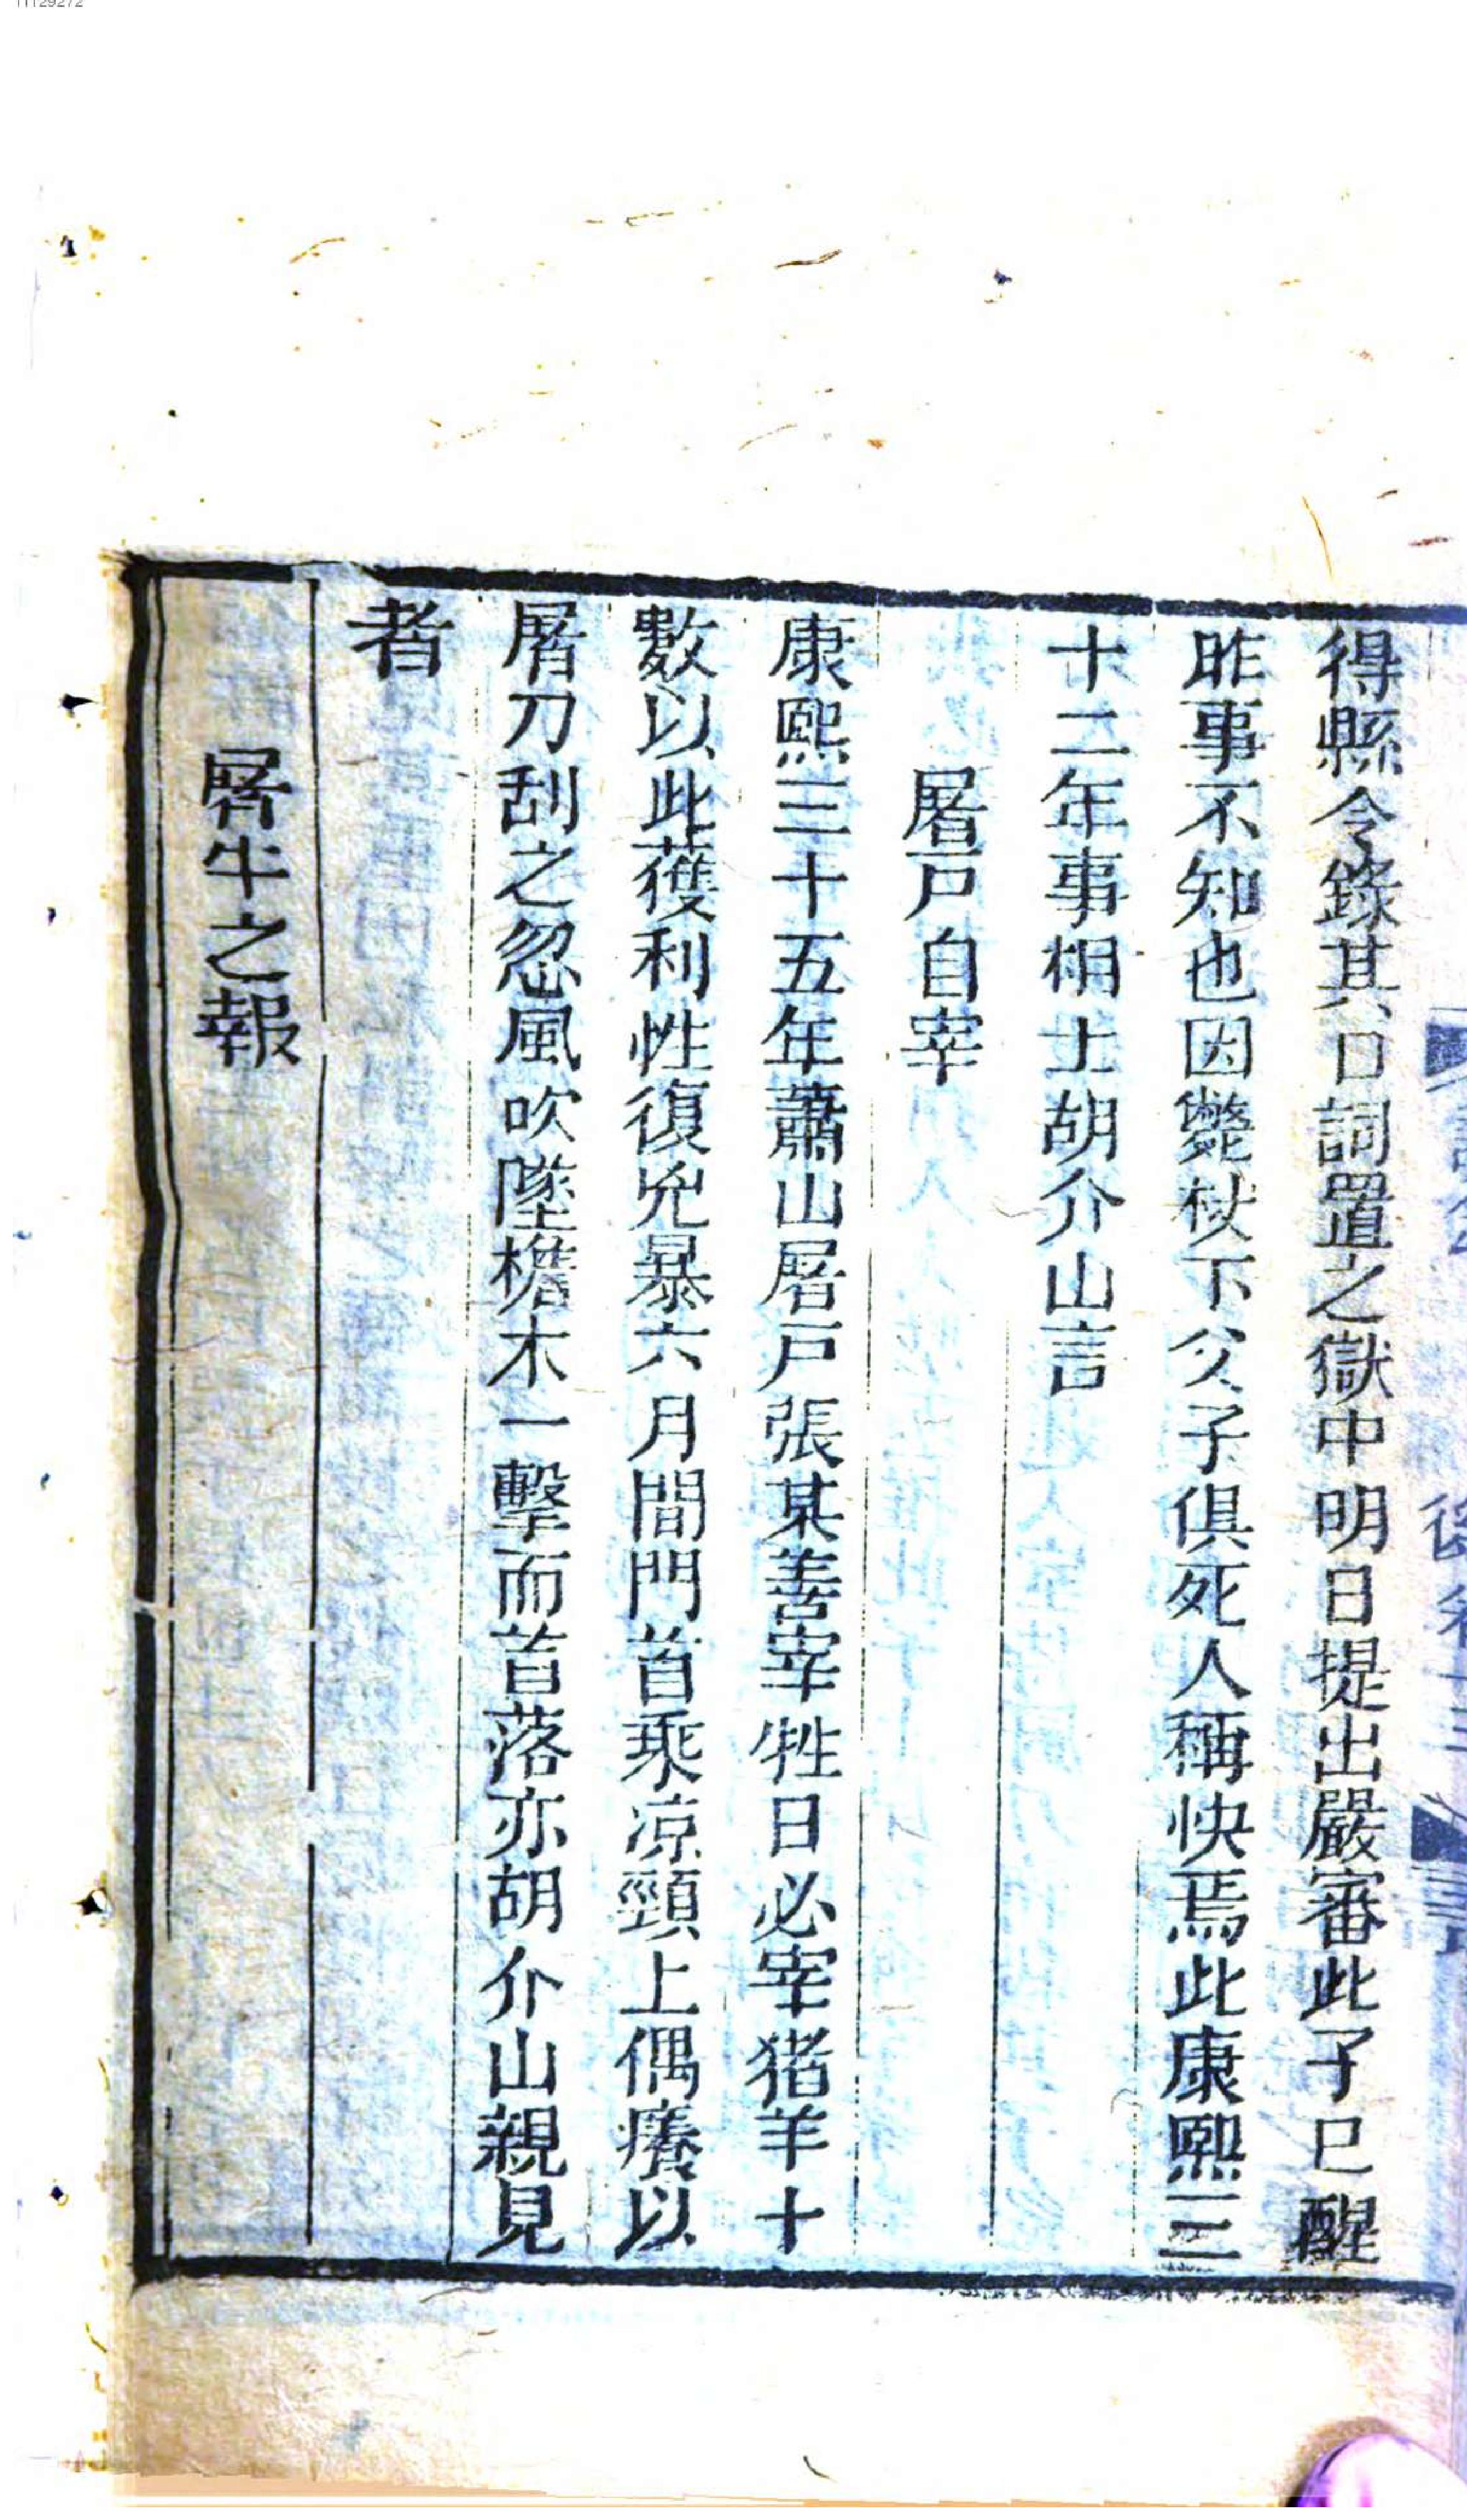 得縣令錄其口詞置之獄中明日提出嚴審此子已醒
昨事不知也因斃杖下父子俱死人稱快焉此康熙三
十二年事相士胡介山言
屠戶自宰
康熙三十五年蕭山屠戶張某善宰牲日必宰猪羊十
數以此獲利性復兇暴六月間門首乘凉頸上偶癢以
屠刀刮之忽風吹墜檐木一擊而首落亦胡介山親見
者
屠牛之報